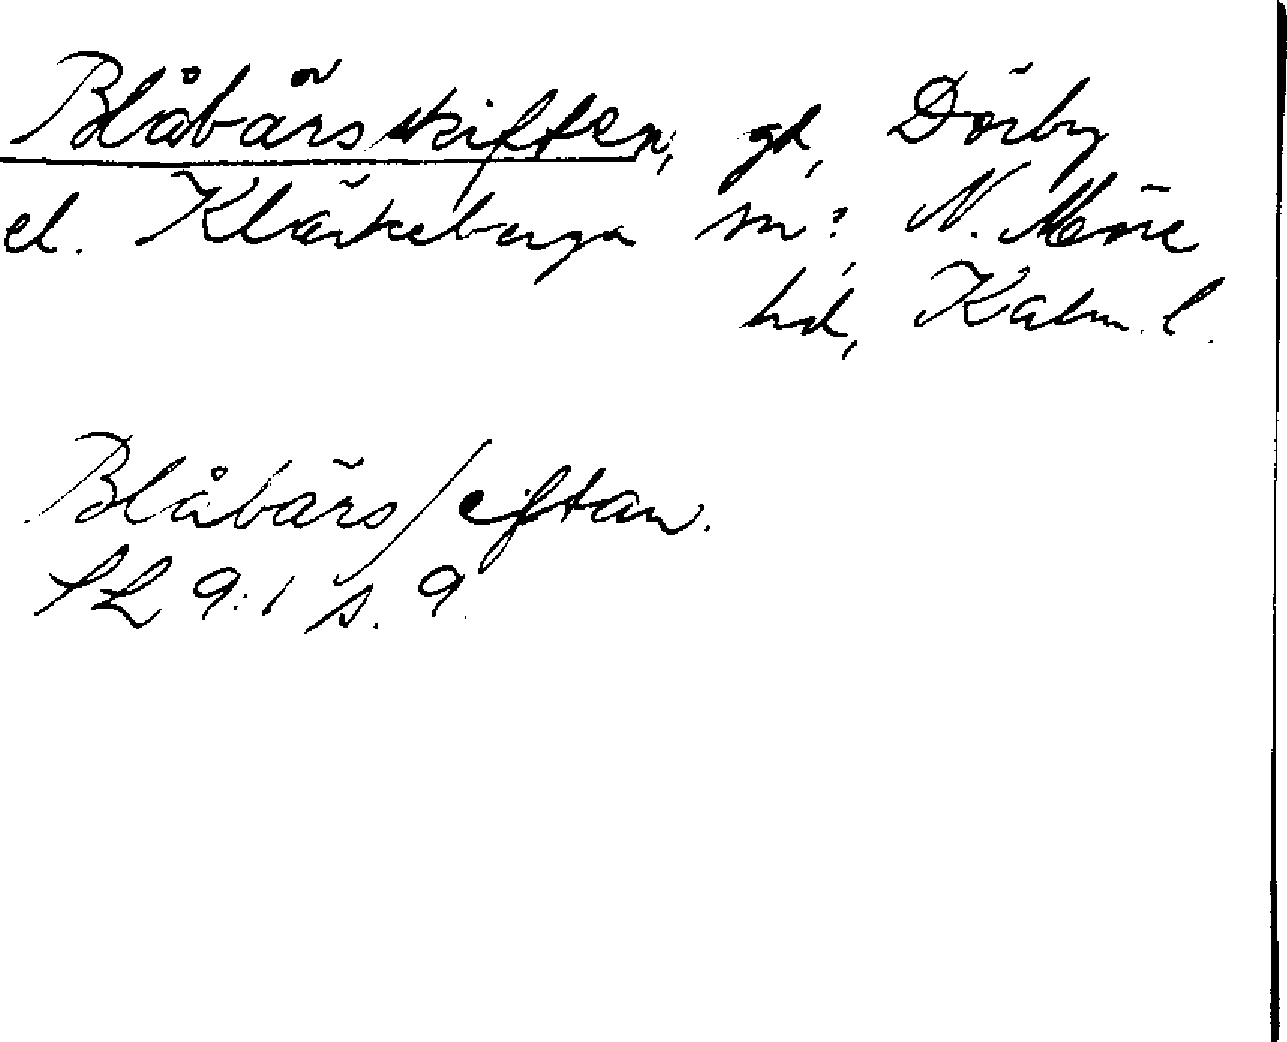 Blåbärsskiften, gd, Dörby
el. Kläckeberga sn?, N. Möre
hd, Kalm. l.
Blåbärs/eftan.
SL 9:1 s. 9.